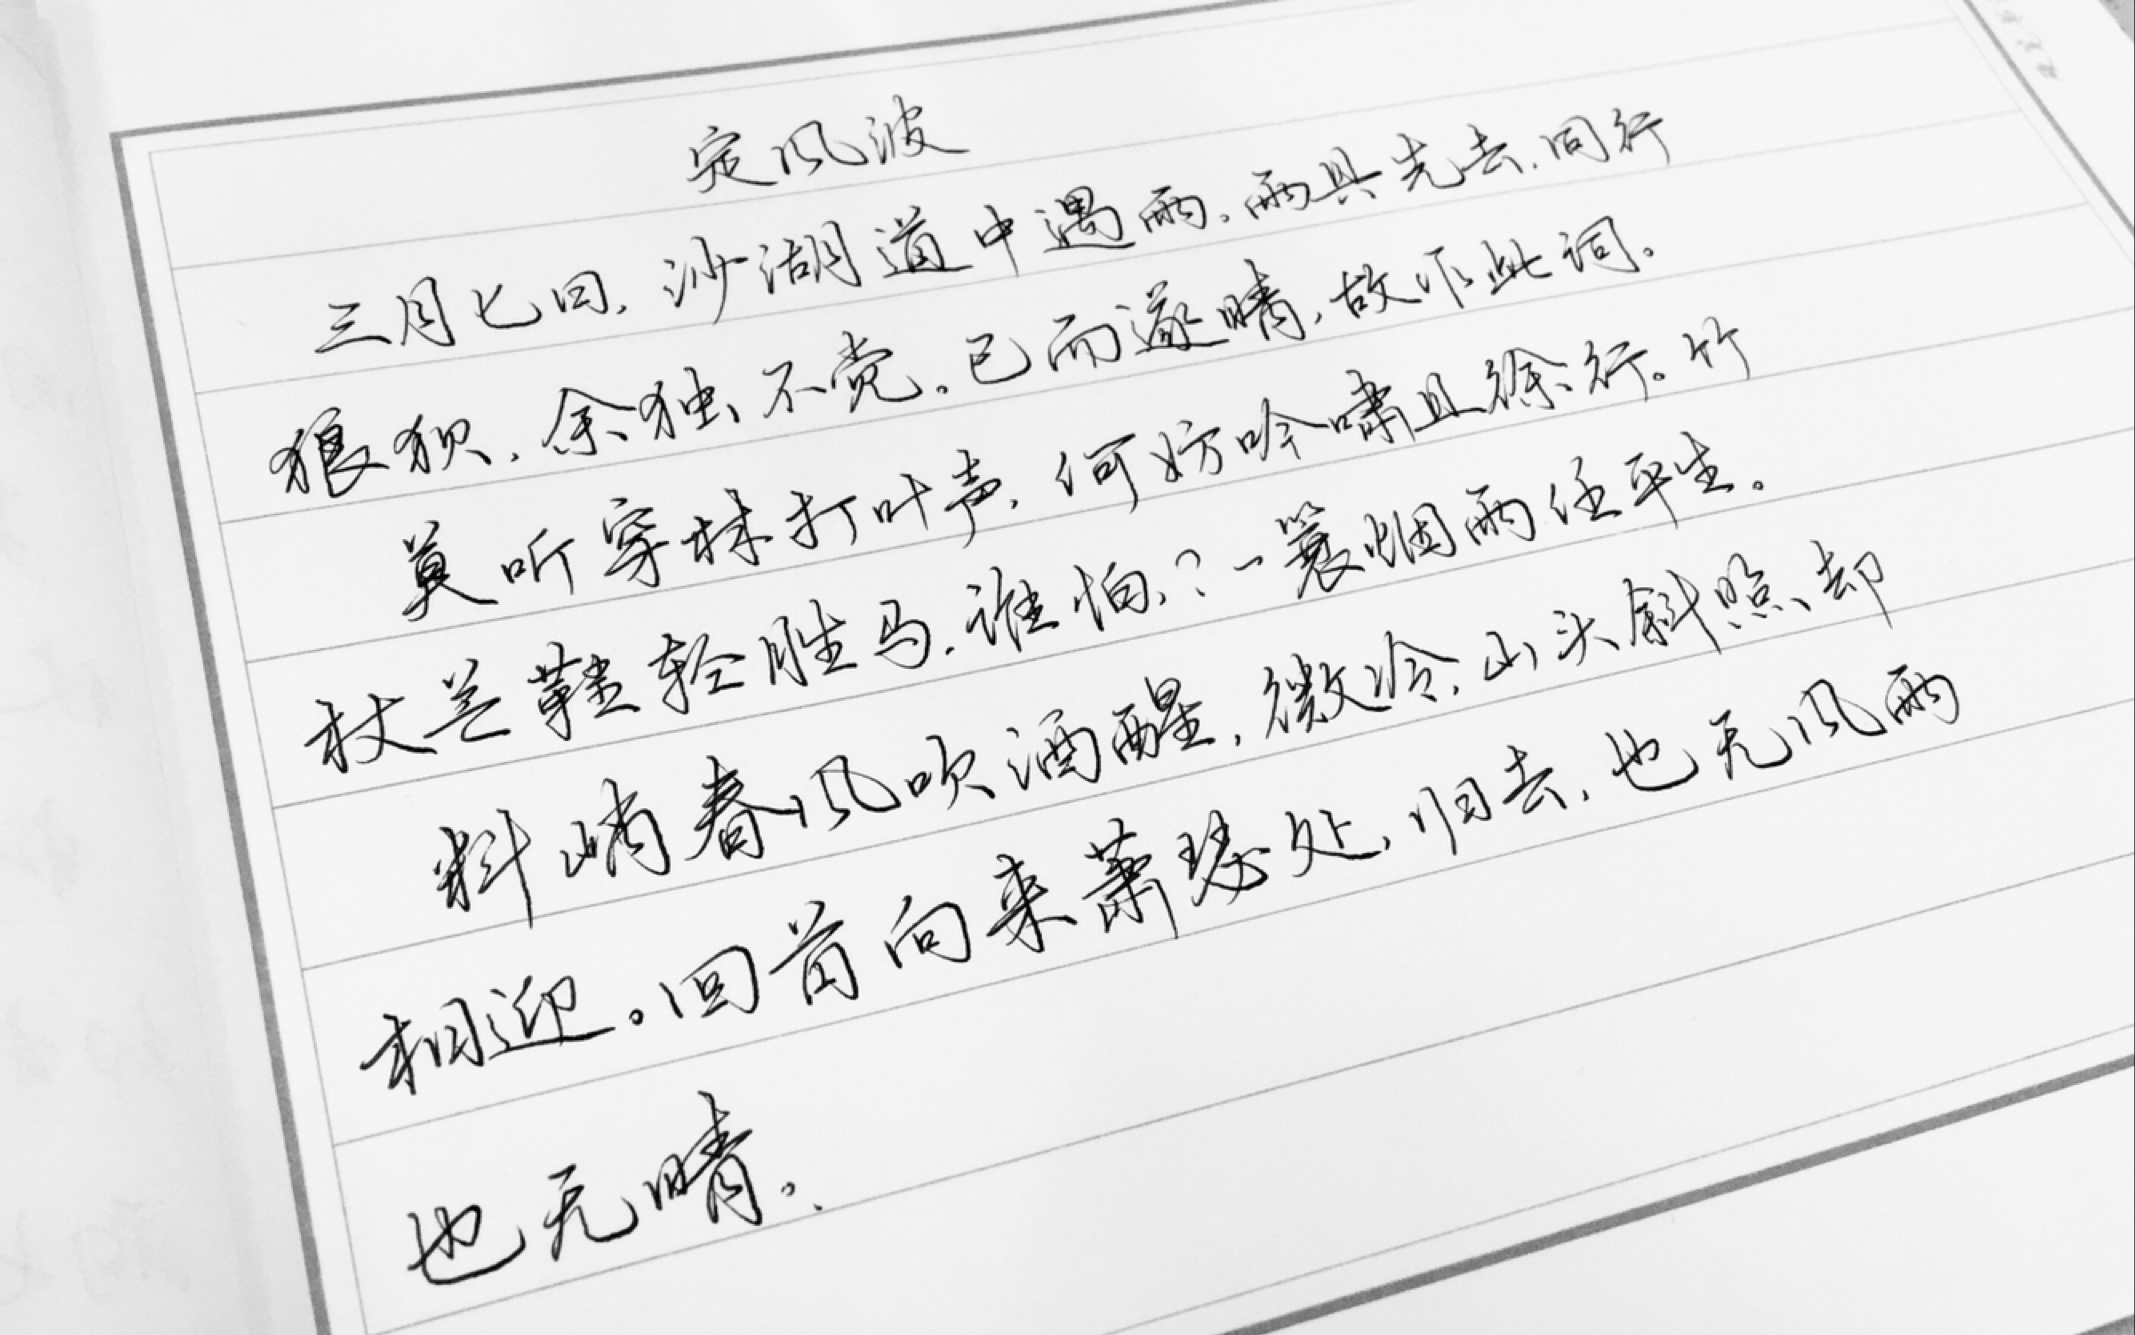 定风波
三月七日，沙湖道中遇雨。雨具先去，同行
狼狈，余独不觉。已而遂晴，故作此词。
莫听穿林打叶声，何妨吟啸且徐行。竹
杖芒鞋轻胜马，谁怕？一蓑烟雨任平生。
料峭春风吹酒醒，微冷，山头斜照却
相迎。回首向来萧瑟处，归去，也无风雨
也无晴。